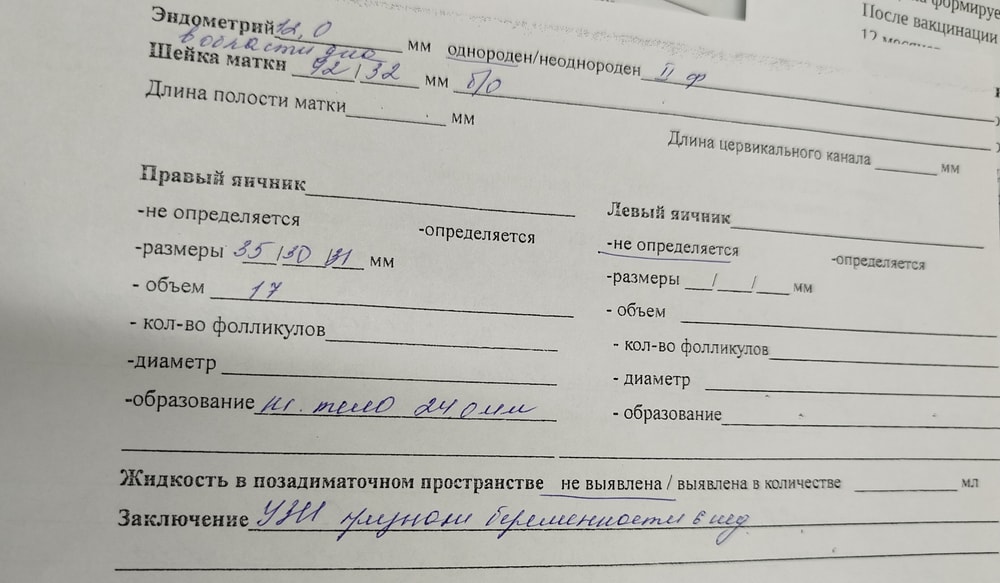 формируе
После вакцинации
Эндометрий 12,0 мм однороден/неоднороден II ф
в области дна
Шейка матки 42 / 32 мм б/о
Длина полости матки мм
Длина цервикального канала мм
Правый яичник
-не определяется -определяется
-размеры 35 / 30 / 31 мм
- объем 17
- кол-во фолликулов
-диаметр
-образование ж. тело 24,0 мм
Левый яичник
-не определяется -определяется
-размеры / / мм
- объем
- кол-во фолликулов
- диаметр
- образование
Жидкость в позадиматочном пространстве не выявлена / выявлена в количестве мл
Заключение УЗИ признаки беременности 6 нед